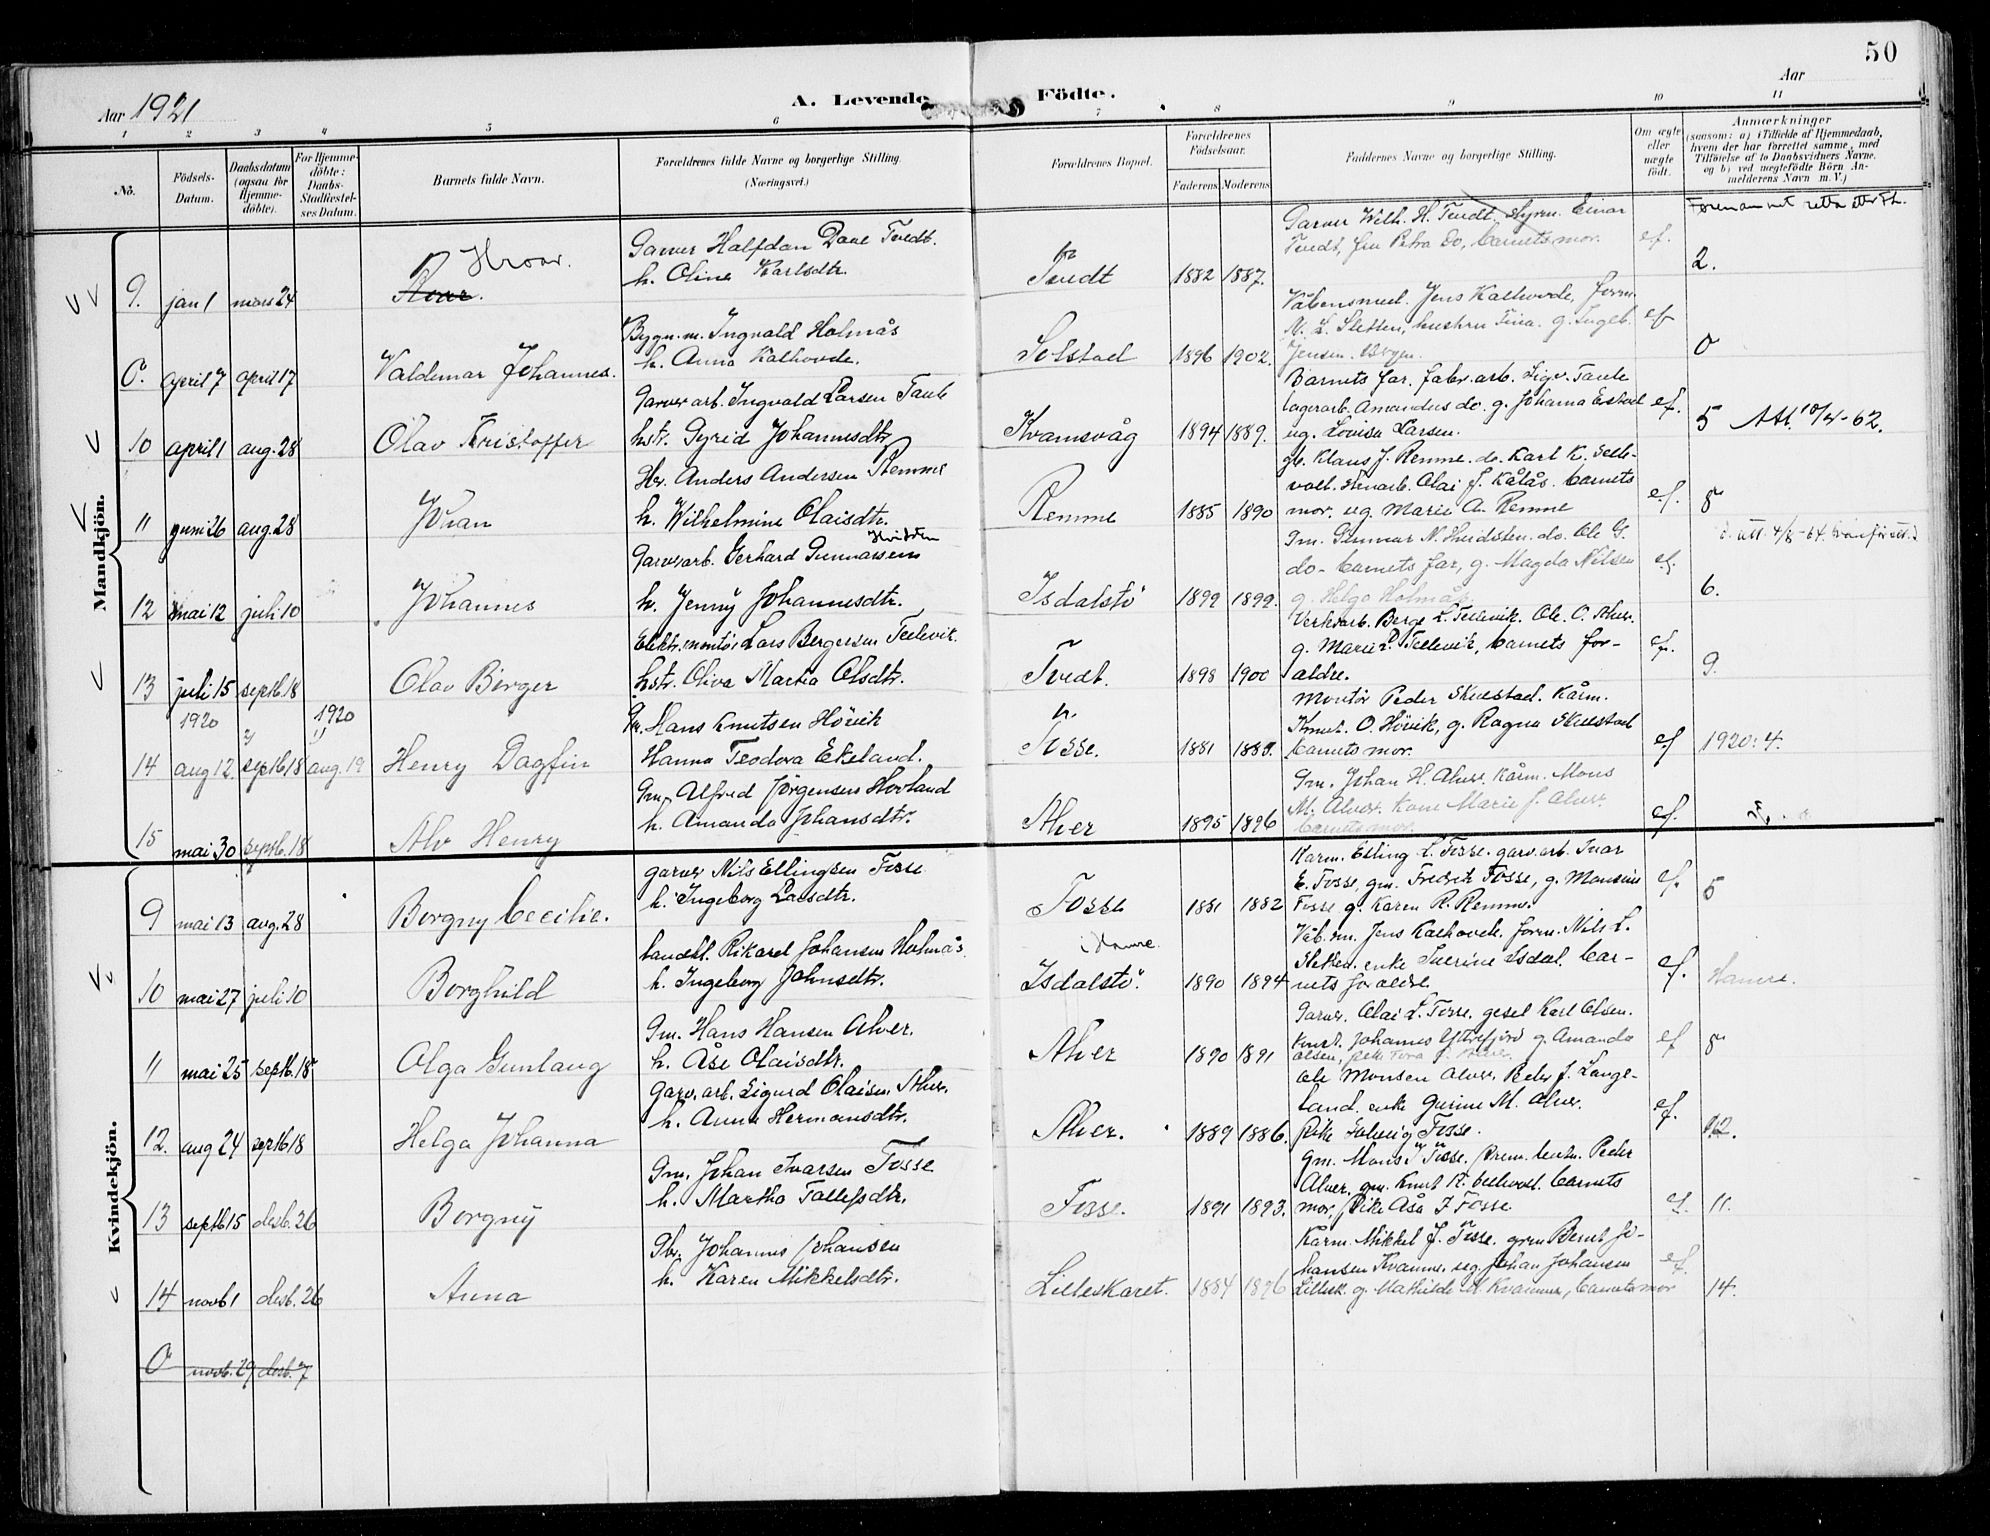 50
Aar 1921
A. Levende
Födte.
Aar
1 2 3 4 5 6 7 8 9 10 11
Nó.
Födsels-
Datum.
Daabsdatum
(ogsaa for
Hjemme-
döbte).
For Hjemme-
döbte:
Daabs-
Stadfæstel-
ses Datum.
Barnets fulde Navn.
Forældrenes fulde Navne og borgerlige Stilling.
(Næringsvei.)
Forældrenes Bopæl.
Forældrenes
Födselsaar.
Faderens Moderens
Faddernes Navne og borgerlige Stilling.
Om ægte
eller
uægte
födt.
Anmærkninger
(saasom: a) i Tilfælde af Hjemmedaab,
hvem der har forrettet samme, med
Tilföielse af to Daabsvidners Navne.
og b) ved uegtefödte Börn An-
melderens Navn m. V.)
Mandkjön.
Fornamnet retta etter
Hroar.
9. jan 1 mars 24 Roar.
Garver Halfdan Dane Tvedt.
h. Oline Karlsdtr.
Tvedt 1882 1887.
Garver Wilh. H. Tvedt, Einar
Tvedt, fru Petra do, barnets mor.
ef. 2.
0. april 7 april 17 Valdemar Johannes.
Bygn.m. Ingvald Holmås
h. Anna Kalhovde.
Solstad 1896 1902.
Jens Kalhovde, form.
N. L. Sletten, hustru Tina. g. Ingeb.
Jensen.
ef 0
10 april 1 aug. 28 Olav Kristoffer
Garverarb. Ingvald Larsen Taule
hstr. Gyrid Johannesdtr
Kvamsvåg 1894 1889.
Barnets far, fabr. arb. Sigv. Taule
lagerarb. Amandus do. g. Johanna
ug. Lovisa Larsen.
ef. 5 Att. 10/4-62.
11 juni 26 aug. 28 Johan
Anders Andersen Remme
h. Wilhelmine Olaisdtr.
Remme 1885 1890
gb. Klaus J. Remme. do. Karl K. Selle-
vold. Olai J. Kålås. barnets
mor. ug. Marie A. Remme
ef. 8
att. 4/8-64.
12 mai 12 juli 10 Johannes
Garverarb. Gerhard Gunnarsen
h. Jenny Johannesdtr.
Isdalstö 1899 1899.
Gm. Gunnar N. do. Ole G.
do - barnets far, g. Magda Nilsen
g. Helga Holmås.
ef. 6.
13 juli 15 septb. 18 Olav Birger
Elektr. montör Lars Bergersen Tellevik.
hstr. Oliva Marta Olsdtr.
Tvedt. 1898 1900
Verksarb. Berge L. Tellevik. Ole O. Alver.
g. Marie Tellevik, barnets for-
ældre.
ef. 9.
1920 1920
14 aug 12. septb 18 aug. 19 Henry Dagfin
Hans Knutsen Hövik
Hanna Teodora Ekeland.
Fosse. 1881 1888.
Montör Peder Skuestad. Kårm.
Knut. O. Hövik, g. Ragna Skuestad
barnets mor.
ef 1920: 4.
15 mai 30 septb. 18 Alv Henry
Gm. Alfred Jörgensen Hovland
h. Amanda Johansdtr.
Alver 1895 1896
Gm. Johan H. Alver. Kårm. Mons
M. Alver. Kone Marie J. Alver.
barnets mor.
ef.
Kvindekjön.
9 mai 13 aug. 28 Borgny Cecilie.
garver Nils Ellingsen Fosse
h. Ingeborg Larsdtr.
Fosse 1881 1882
Karm. Elling L. Fosse. garv. arb. Ivar
E. Fosse, gm. Fredrik Fosse, g. Monsine
Fosse g. Karen R. Remme.
ef. 5
10 mai 27 juli 10 Borghild
Landh. Rikard Johansen Holmås
h. Ingeborg Johnsdtr.
i Hamre.
Isdalstö. 1890 1894
Våb. sm. Jens Kalhovde. form. Nils L.
Sletten. enke Severine Isdal. bar-
nets foraeldre
ef. Hamre.
11 mai 25 septb. 18 Olga Gunlaug
Gm. Hans Hansen Alver.
h. Åse Olaisdtr.
Alver 1890 1891
Garver. Olai L. Fosse, gesel Karl Olsen.
Johannes Ystrefjord g. Amanda
Olsen,
ef 8
12. aug 24 septb 18 Helga Johanna
Garv. arb. Sigurd Olaisen Alver.
h. Anna Hermansdtr.
Alver. 1889 1886.
Ole Monsen Alver. Peder J. Lange-
land. enke Gurine M. Alver.
pike Solveig Fosse.
ef. 12.
13 septb 15 desb. 26 Borgny
Gm. Johan Ivarsen Fosse
h. Martha Tollefsdtr.
Fosse. 1891 1893.
gm. Mons I Fosse. Peder
Alver. gm. Knut K. barnets
mor, pike Åsa I Fosse.
ef. 11.
14 novb 1 desb. 26 Anna
Gbr. Johannes Johansen
h. Karen Mikkelsdtr.
Lilleskaret. 1884 1896
Kårm. Mikkel J. Fosse. grm Bernt Jo-
hansen Kvamme, seg. Johan Johansen
Lillesk. g. Mathilde M. Kvamme, barnets mor
ef. 14.
0 novb. 29 desb. 7